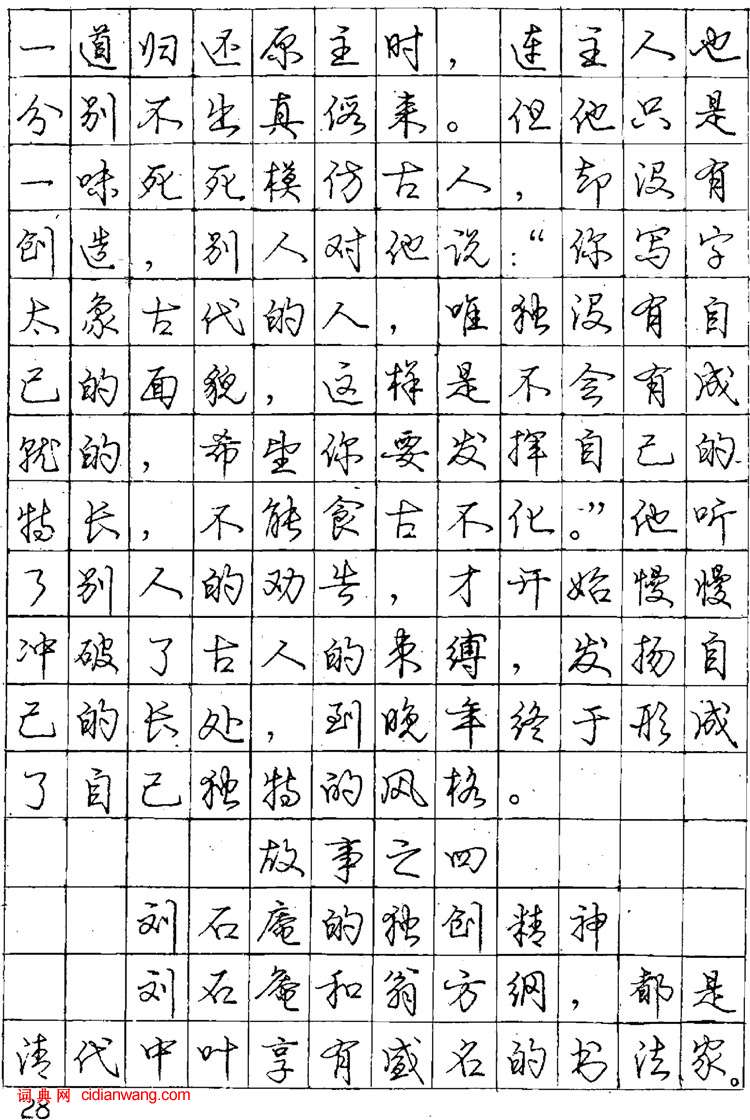 一道归还原主时，连主人也
分别不出真伪来。但他只是
一味死死模仿古人，却没有
创造，别人对他说：“你写字
太象古代的人，唯独没有自
己的面貌，这样是不会有成
就的，希望你要发挥自己的
特长，不能食古不化。”他听
了别人的劝告，才开始慢慢
冲破了古人的束缚，发扬自
己的长处，到晚年终于形成
了自己独特的风格。
故事之四
刘石庵的独创精神
刘石庵和翁方纲，都是
清代中叶享有盛名的书法家。
词典网 cidianwang.com
28